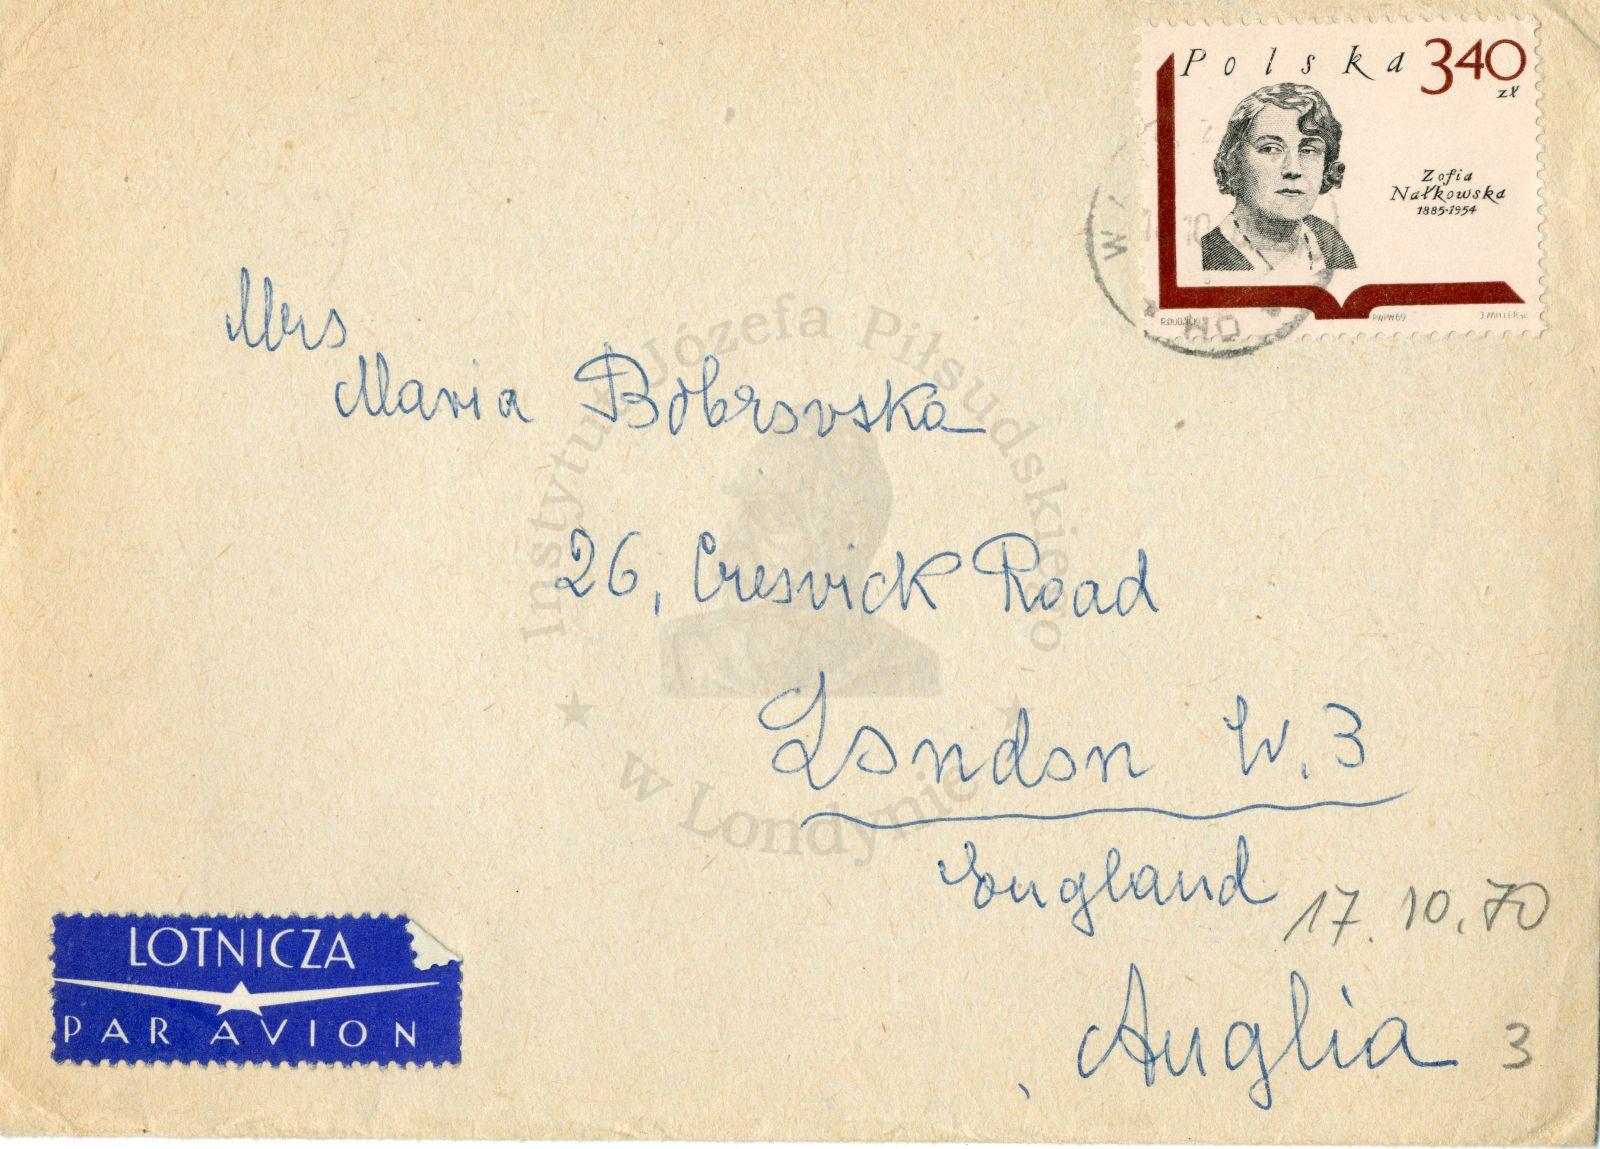 Polska 340
zł
Zofia
Nałkowska
1885-1954
PWPW69
Mrs
Maria Bobrowska
26, Creswick Road
London W. 3
England
17. 10. 70
Anglia
3
LOTNICZA
PAR AVION
Instytut Józefa Piłsudskiego
w Londynie